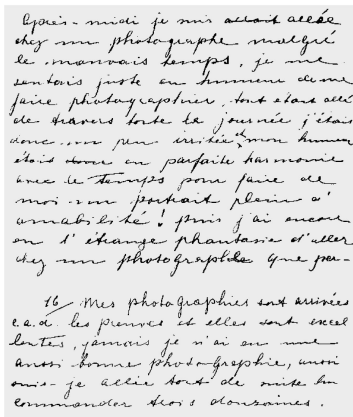 Après-midi je suis allée
chez un photographe malgré
le mauvais temps, je me
sentais juste en humeur de me
faire photographier, tout étant allé
de travers toute la journée j'étais
donc un peu irritée et mon humeur
étais donc en parfaite harmonie
avec le temps pour faire de
moi un portrait plein d'
amabilité! puis j'ai encore
eu l'étrange phantasie d'aller
chez un photographe que par-
16/ Mes photographies sont arrivées
c.a.d. les preuves et elles sont excel
lentes, jamais je n'ai eu une
aussi bonne photographie, aussi
suis-je allée tout de suite en
commander trois douzaines.